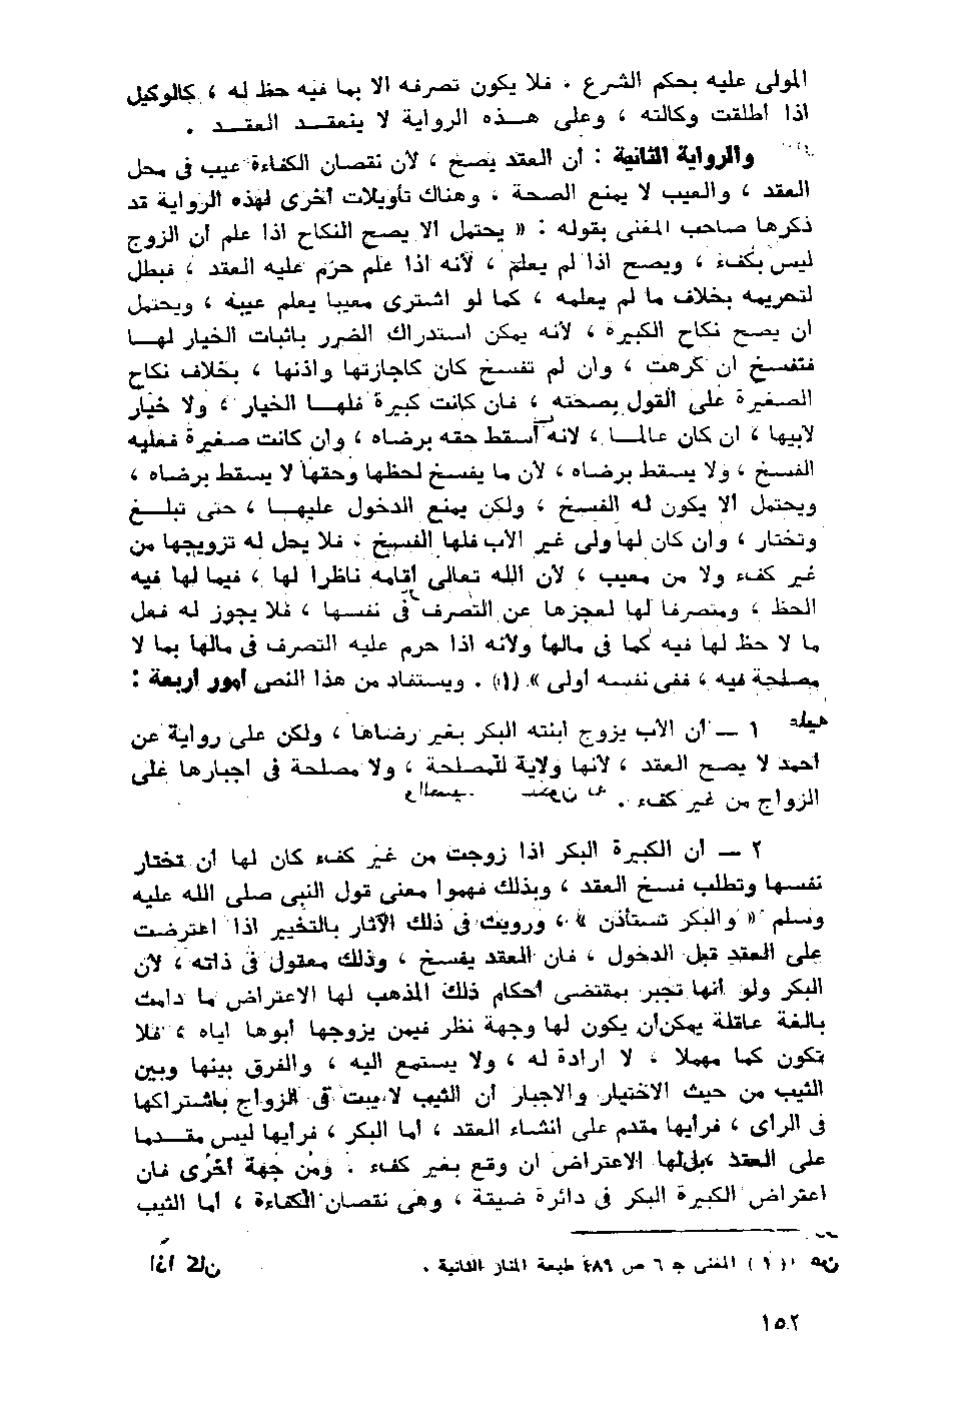 المولى عليه بحكم الشرع ، فلا يكون تصرفه الا بما فيه حظ له ، كالوكيل
اذا أطلقت وكالته ، وعلى هـــذه الرواية لا ينعقـــد العقـــد .
والرواية الثانية : أن العقد يصح ، لأن نقصان الكفاءة عيب فى محل
العقد ، والعيب لا يمنع الصحة ، وهناك تأويلات أخرى لهذه الرواية قد
ذكرها صاحب المغنى بقوله : « يحتمل ألا يصح النكاح اذا علم أن الزوج
ليس بكفء ، ويصح اذا لم يعلم ، لأنه اذا علم حرم عليه العقد ، فبطل
لتحريمه بخلاف ما لم يعلمه ، كما لو اشترى معيبا يعلم عيبه ، ويحتمل
ان يصح نكاح الكبيرة ، لأنه يمكن استدراك الضرر باثبات الخيار لهـــا
فتفســخ ان كرهت ، وان لم تفســخ كان كاجازتها واذنها ، بخلاف نكاح
الصغيرة على القول بصحته ، فان كانت كبيرة فلهـــا الخيار ، ولا خيار
لابيها ، ان كان عالمـــا ، لانه أسقط حقه برضاه ، وان كانت صغيرة فعليه
الفسخ ، ولا يسقط برضاه ، لأن ما يفسخ لحظها وحقها لا يسقط برضاه ،
ويحتمل ألا يكون له الفسخ ، ولكن يمنع الدخول عليهـــا ، حتى تبلـــغ
وتختار ، وان كان لها ولى غير الأب فلها الفسخ ، فلا يحل له تزويجها من
غير كفء ولا من معيب ، لأن الله تعالى أقامه ناظرا لها ، فيما لها فيه
الحظ ، ومتصرفا لها لعجزها عن التصرف فى نفسها ، فلا يجوز له فعل
ما لا حظ لها فيه كما فى مالها ولأنه اذا حرم عليه التصرف فى مالها بما لا
مصلحة فيه ، ففى نفسه أولى » (١) . ويستفاد من هذا النص أمور أربعة :
١ ــ أن الأب يزوج ابنته البكر بغير رضاها ، ولكن على رواية عن
أحمد لا يصح العقد ، لأنها ولاية للمصلحة ، ولا مصلحة فى اجبارها على
الزواج من غير كفء .
٢ ــ أن الكبيرة البكر اذا زوجت من غير كفء كان لها أن تختار
نفسها وتطلب فسخ العقد ، وبذلك فهموا معنى قول النبى صلى الله عليه
وسلم « والبكر تستأذن » ، ورويت فى ذلك الآثار بالتخيير اذا اعترضت
على العقد قبل الدخول ، فان العقد يفسخ ، وذلك معقول فى ذاته ، لأن
البكر ولو أنها تجبر بمقتضى أحكام ذلك المذهب لها الاعتراض ما دامت
بالغة عاقلة يمكن أن يكون لها وجهة نظر فيمن يزوجها أبوها اياه ، فلا
تكون كما مهملا ، لا ارادة له ، ولا يستمع اليه ، والفرق بينها وبين
الثيب من حيث الاختيار والاجبار أن الثيب لا يبت فى الزواج باشتراكها
فى الرأى ، فرأيها مقدم على انشاء العقد ، أما البكر ، فرأيها ليس مقـــدما
على العقد ، بل لها الاعتراض ان وقع بغير كفء . ومن جهة أخرى فان
اعتراض الكبيرة البكر فى دائرة ضيقة ، وهى نقصان الكفاءة ، أما الثيب
(١) المغنى جـ ٦ ص ٤٨٩ طبعة المنار الثانية .
١٥٢